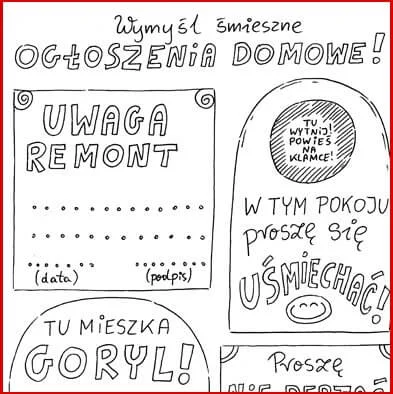 Wymyśl śmieszne
OGŁOSZENIA DOMOWE!
UWAGA
REMONT
(data) (podpis)
TU
WYTNIJ!
POWIEŚ
NA
KLAMCE!
W TYM POKOJU
proszę się
UŚMIECHAĆ!
TU MIESZKA
GORYL!
Proszę
NIE DEPTAĆ